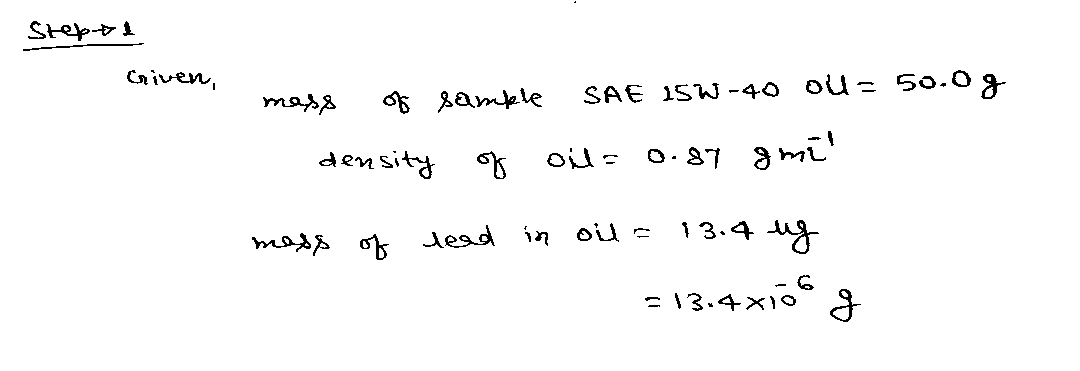 Step→1
Given,
mass of sample SAE 15W-40 oil = 50.0 g
density of oil = 0.87 g mL⁻¹
mass of lead in oil = 13.4 ug
= 13.4×10⁻⁶ g